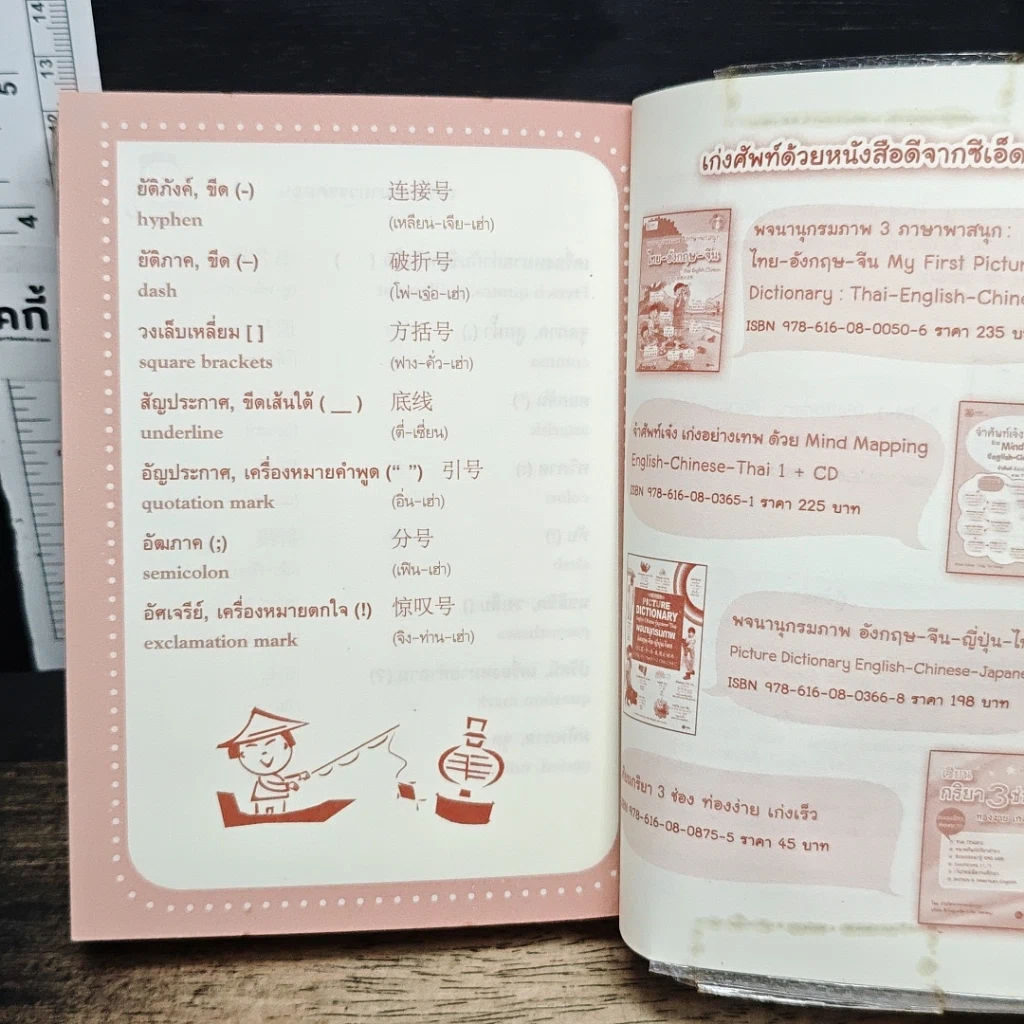 ยัติภังค์, ขีด (-) 连接号
hyphen (เหลียน-เจีย-เฮ่า)
ยัติภาค, ขีด (–) 破折号
dash (โพ่-เจ๋อ-เฮ่า)
วงเล็บเหลี่ยม [ ] 方括号
square brackets (ฟาง-คั่ว-เฮ่า)
สัญประกาศ, ขีดเส้นใต้ ( __ ) 底线
underline (ตี่-เซี่ยน)
อัญประกาศ, เครื่องหมายคำพูด (“ ”) 引号
quotation mark (อิ่น-เฮ่า)
อัฒภาค (;) 分号
semicolon (เฟิน-เฮ่า)
อัศเจรีย์, เครื่องหมายตกใจ (!) 惊叹号
exclamation mark (จิง-ท่าน-เฮ่า)
เก่งศัพท์ด้วยหนังสือดีจากซีเอ็ด
พจนานุกรมภาพ 3 ภาษาพาสนุก :
ไทย-อังกฤษ-จีน My First Pictur
Dictionary : Thai-English-Chine
ISBN 978-616-08-0050-6 ราคา 235 บ
ไทย-อังกฤษ-จีน
จำศัพท์เจ๋ง เก่งอย่างเทพ ด้วย Mind Mapping
English-Chinese-Thai 1 + CD
ISBN 978-616-08-0365-1 ราคา 225 บาท
จำศัพท์เจ๋ง
PICTURE
DICTIONARY
พจนานุกรมภาพ
พจนานุกรมภาพ อังกฤษ-จีน-ญี่ปุ่น-ไ
Picture Dictionary English-Chinese-Japane
ISBN 978-616-08-0366-8 ราคา 198 บาท
กริยา 3 ช่อง ท่องง่าย เก่งเร็ว
978-616-08-0875-5 ราคา 45 บาท
กริยา 3